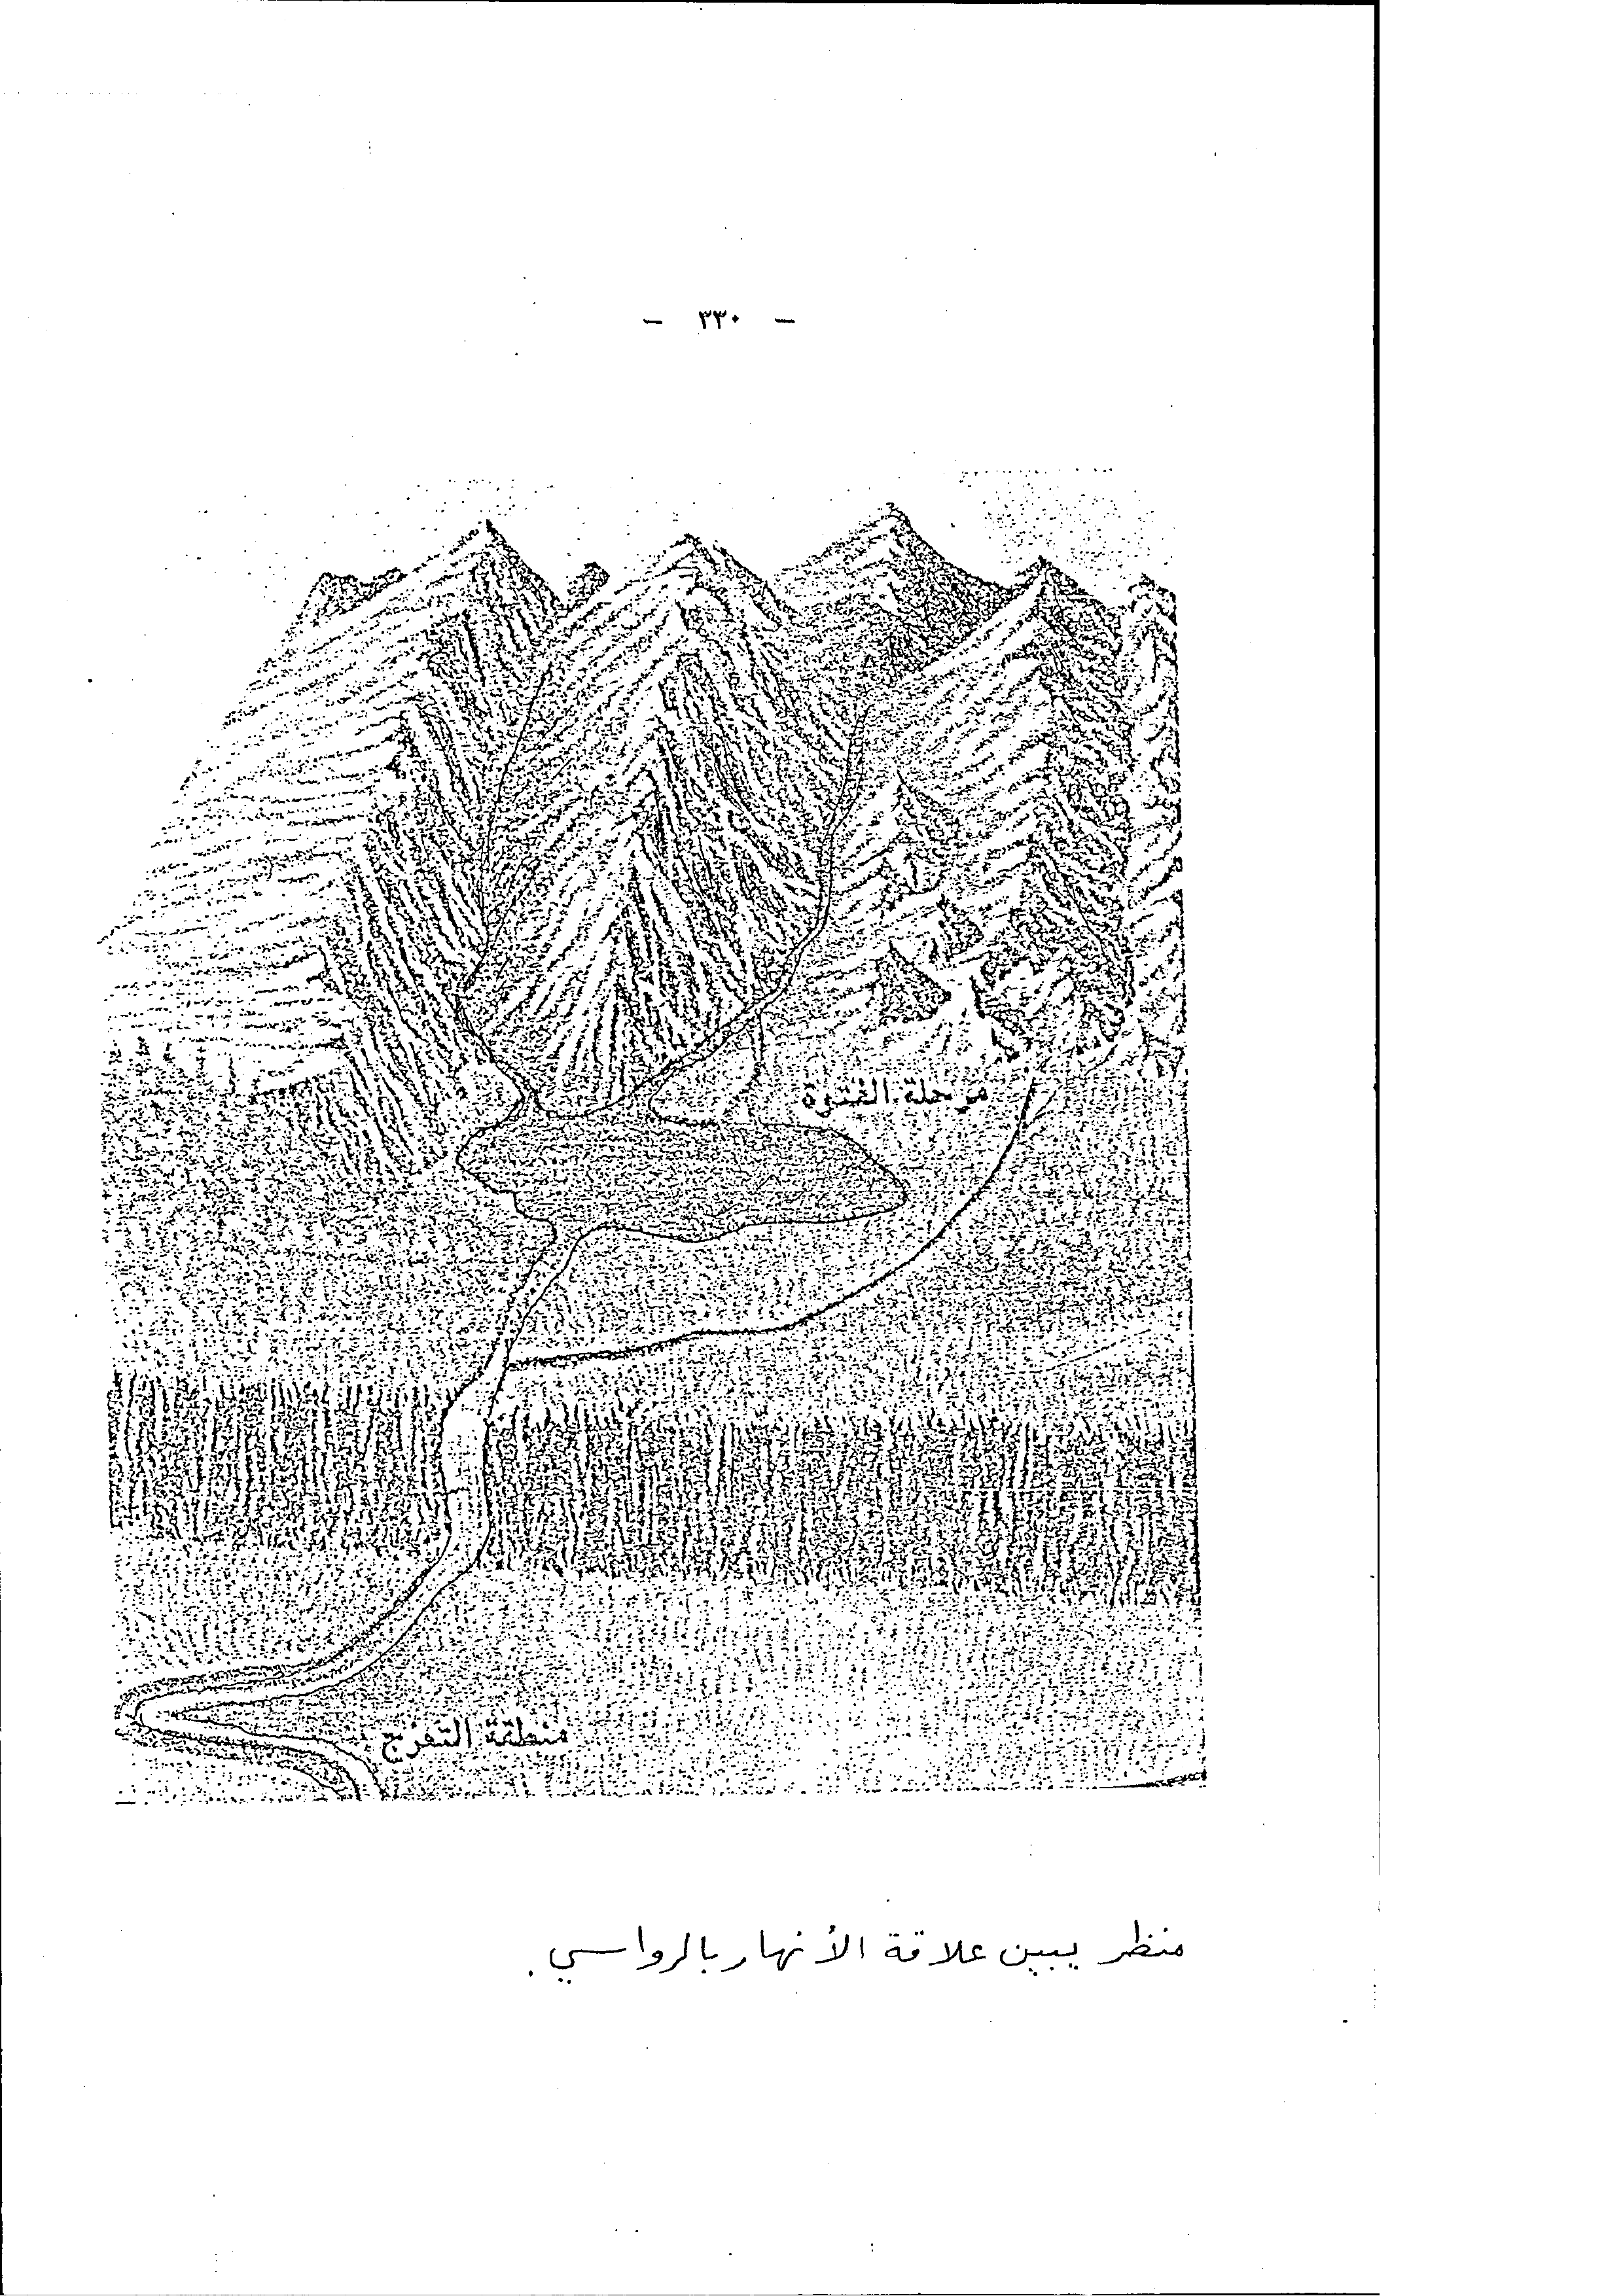 - ٣٣٠ -
مرحلة الفتوة
منطقة التعرج
منظر يبين علاقة الأنهار بالرواسي .